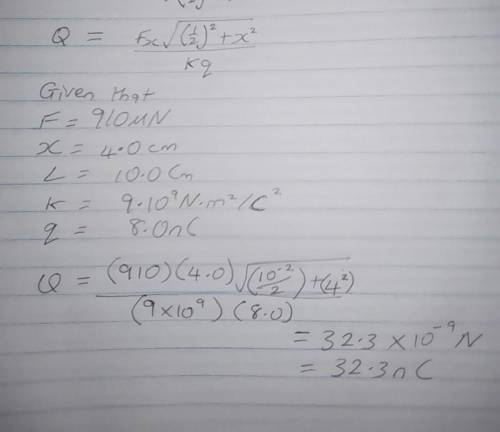 Q = Fx√((1/2)² + x²) / kq
Given that
F = 910 μN
x = 4.0 cm
L = 10.0 cm
K = 9·10⁹ N·m²/C²
q = 8.0nC
Q = (910)(4.0)√((10⁻²/2) + (4²)) / (9×10⁹)(8.0)
= 32.3 × 10⁻⁹ N
= 32.3nC